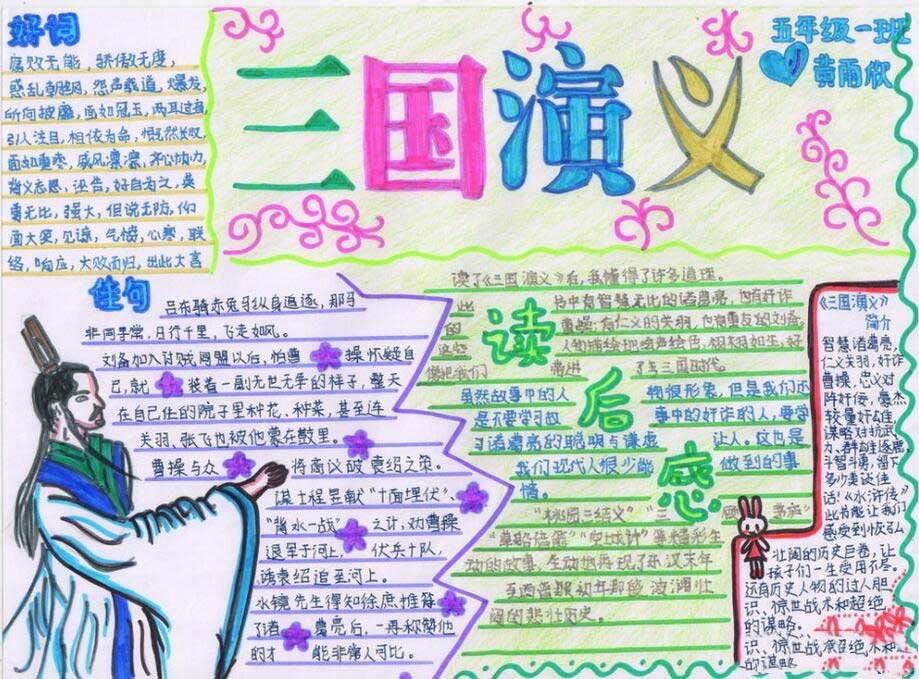 好词
腐败无能，骄傲无度，
惑乱朝纲，怨声载道，爆发，
所向披靡，面如冠玉，两耳过肩，
引人注目，相依为命，慨然长叹，
面如重枣，威风凛凛，齐心协力，
背义忘恩，诬告，好自为之，英
勇无比，强大，但说无防，仰
面大笑，见谅，气愤，心寒，联
络，响应，大败而归，出此大言
三国演义
五年级一班
黄雨欣
佳句
吕布骑赤兔马纵身追逐，那马
非同寻常，日行千里，飞走如风。
刘备加入讨贼同盟以后，怕曹操怀疑自
己，就装着一副无世无争的样子，整天
在自己住的院子里种花、种菜，甚至连
关羽、张飞也被他蒙在鼓里。
曹操与众将商议破袁绍之策。
谋士程昱献“十面埋伏”，
“背水一战”之计，劝曹操
退军于河上，伏兵十队，
诱袁绍追至河上。
水镜先生得知徐庶推荐
了诸葛亮后，一再称赞他
的才能非常人可比。
读后感
读了《三国演义》后，我懂得了许多道理。
此书中有智慧无比的诸葛亮，也有奸诈
的曹操；有仁义的关羽，也有重友的刘备。
这些人物描绘把绘声绘色，栩栩如生，好
像把我们带进了三国时代。
虽然故事中的人物很形象，但是我们还
是不要学习故事中的奸诈的人，要学
习诸葛亮的聪明与谦虚让人。这也是
我们现代人很少能做到的事
情。
“桃园三结义”“三
“草船借箭”“空城计”等精彩生
动的故事，生动地再现了东汉末年
至西晋初年那段波澜壮
阔的悲壮历史。
《三国演义》
简介
智慧诸葛亮，
仁义关羽，奸诈
曹操，忠义对
阵奸佞，豪杰
较量奸雄，
谋略对抗武
力，群雄逐鹿，
斗智斗勇，留下
多少美谈佳
话！《水浒传》
此书能让我们
感受到恢弘
壮阔的历史巨卷，让
孩子们一生受用不尽。
还有历史人物的过人胆
识、惊世战术和超绝
的谋略。
识、惊世战术超绝和
的谋略